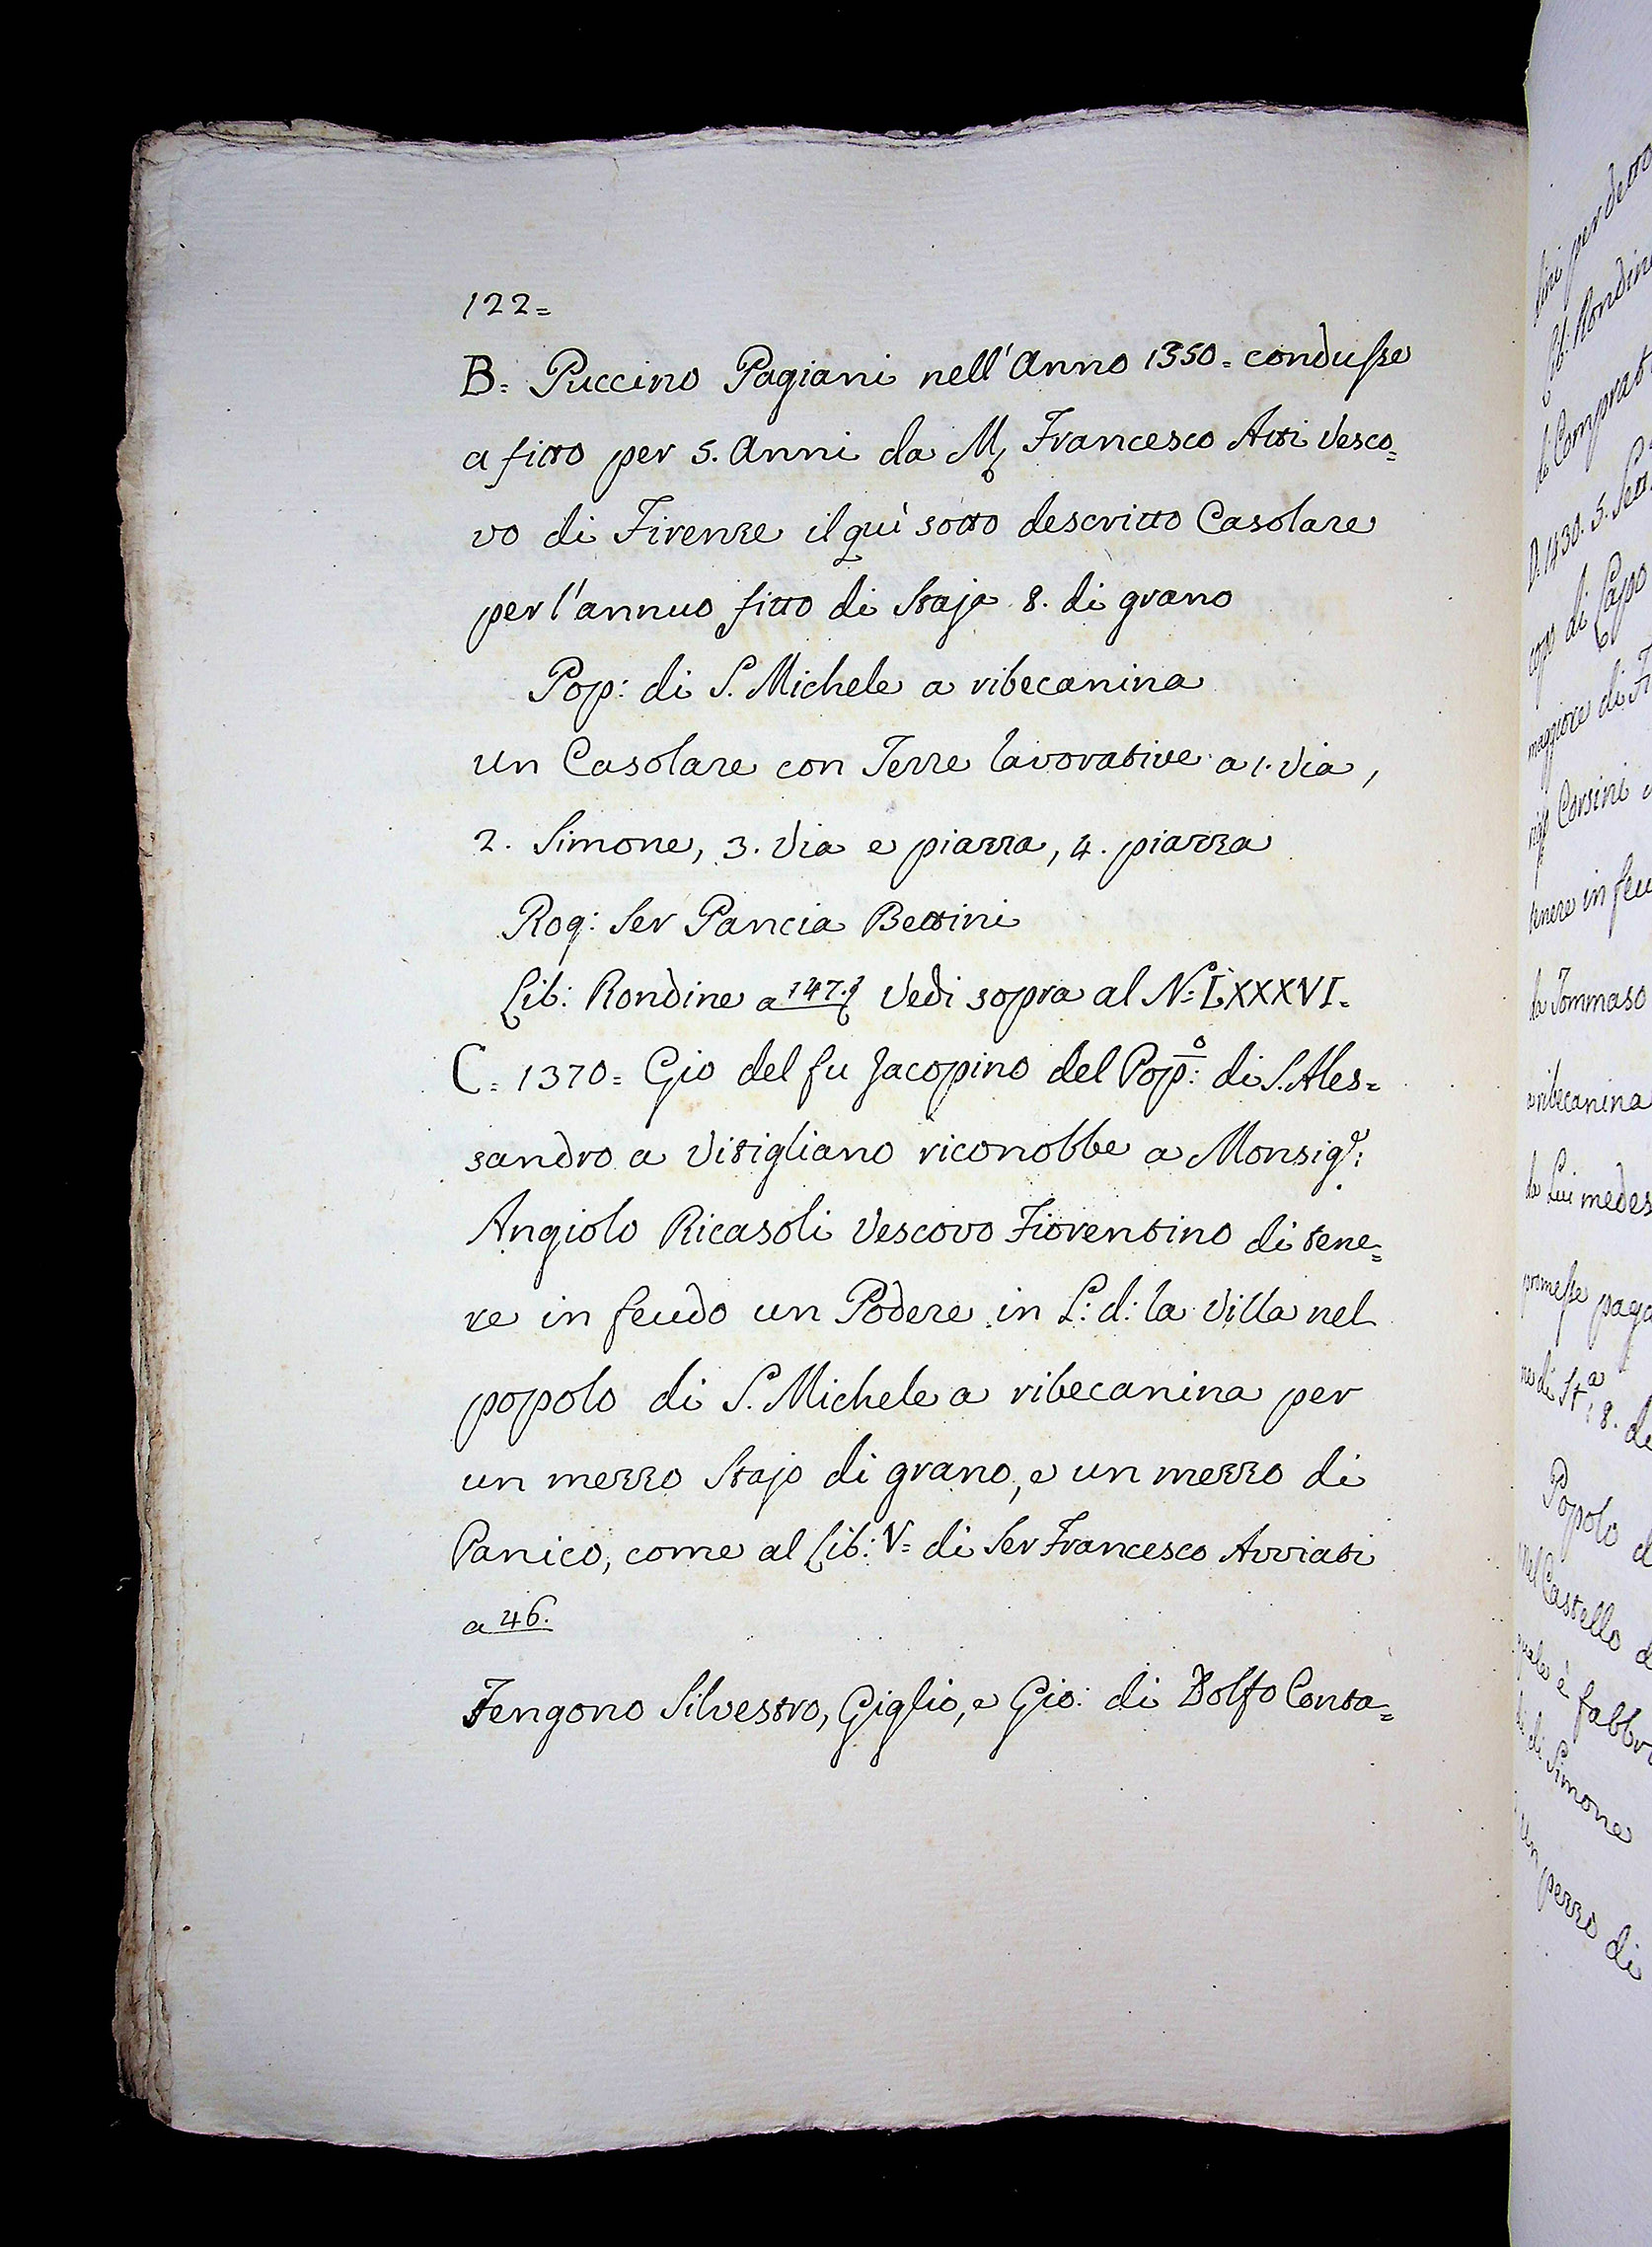 122=
B= Puccino Pagiani nell'Anno 1350= condusse
a fitto per 5. Anni da M, Francesco Atti Vesco=
vo di Firenze il quì sotto descritto Casolare
per l'annuo fitto di Staja 8. di grano
Pop: di S. Michele a ribecanina
un Casolare con Terre lavorative a 1. via,
2. Simone, 3. Via e piazza, 4. piazza
Rog: Ser Pancia Bettini
Lib: Rondine a 147. Vedi sopra al N: LXXXVI.
C= 1370= Gio del fu Jacopino del Pop:º di S. Ales=
sandro a Vitigliano riconobbe a Monsig.r:
Angiolo Ricasoli Vescovo Fiorentino di tene=
re in feudo un Podere in L: d: la Villa nel
popolo di S. Michele a ribecanina per
un mezzo Stajo di grano, e un mezzo di
Panico, come al Lib: V= di Ser Francesco Avviati
a 46.
Tengono Silvestro, Giglio, e Gio: di Dolfo Conta=
per detto
Lib: Rondine
di Comprat
D. 1430. 5. Sett.
di Lapo
maggiore di Fi
Corsini
tenere in feu
da Tommaso
a ribecanina
da Lui medes
promesse paga
ne di St.a: 8. di
Popolo d
nel Castello d
quale è fabbr
di Simone
un pezzo di